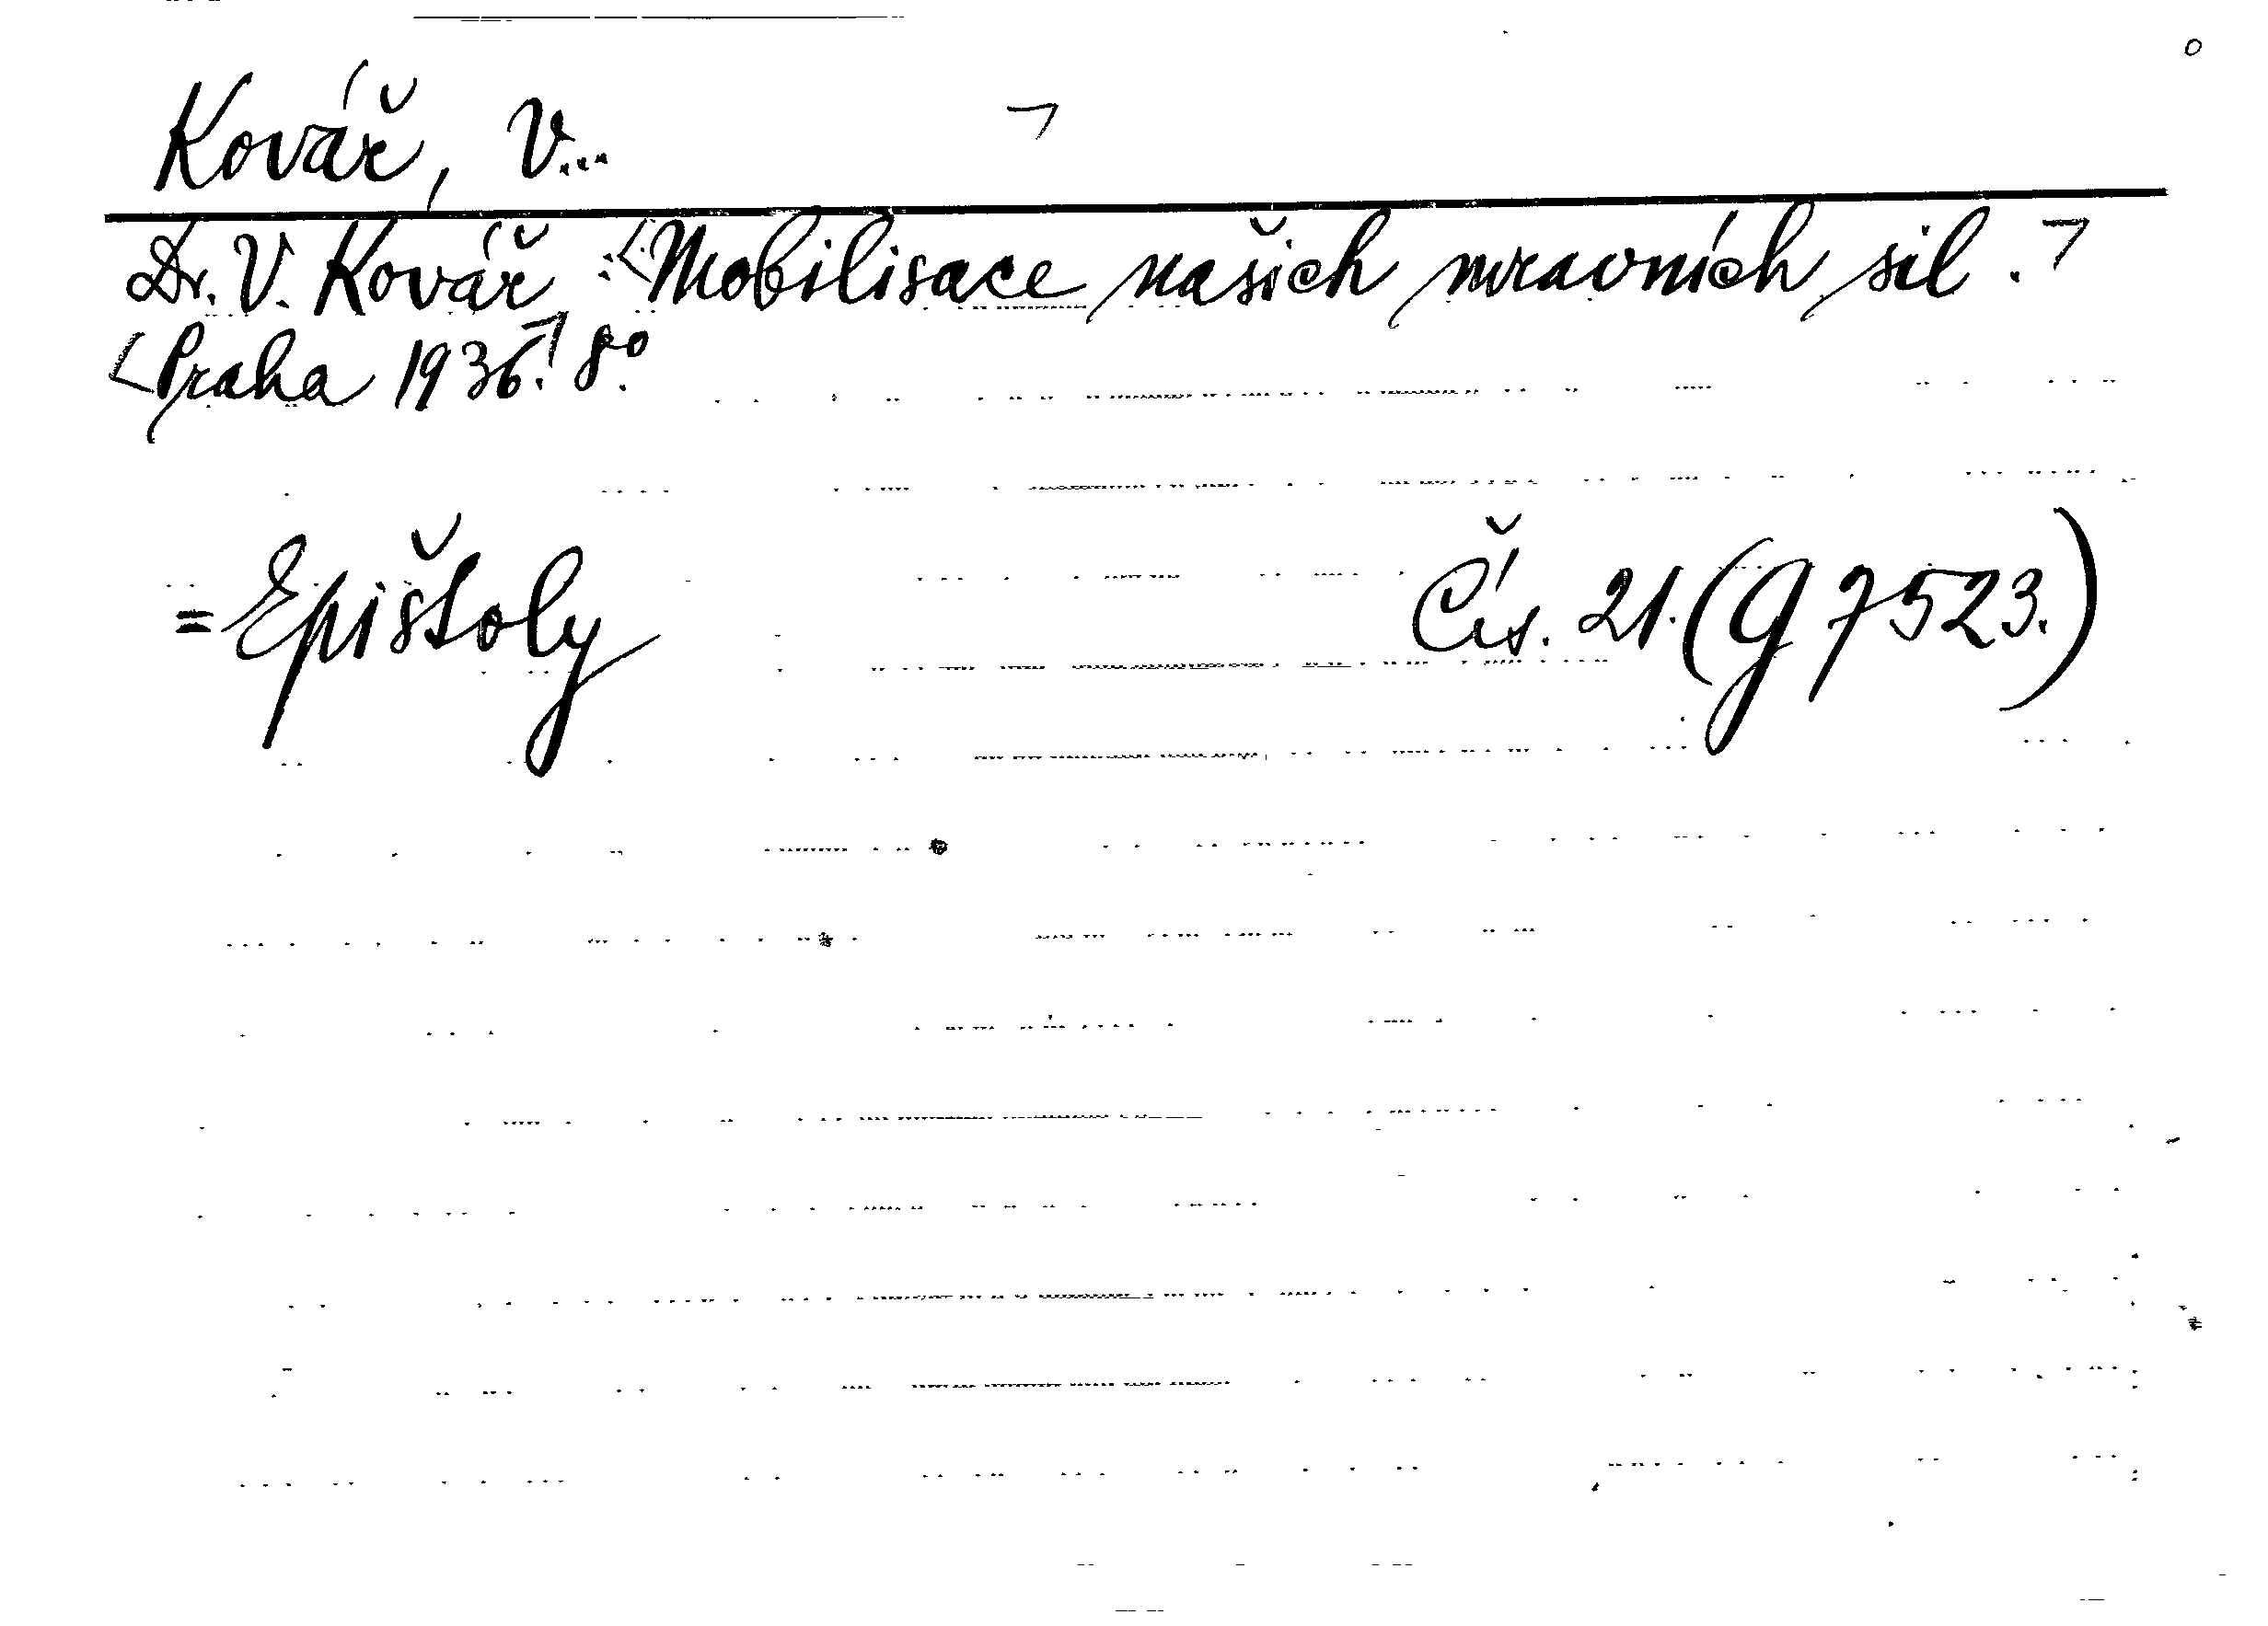 Kovář, V...
Dr. V. Kovář: Mobilisace našich mravních sil.
Praha 1936. 8°.
= Epištoly Čís. 21. (G 7523.)